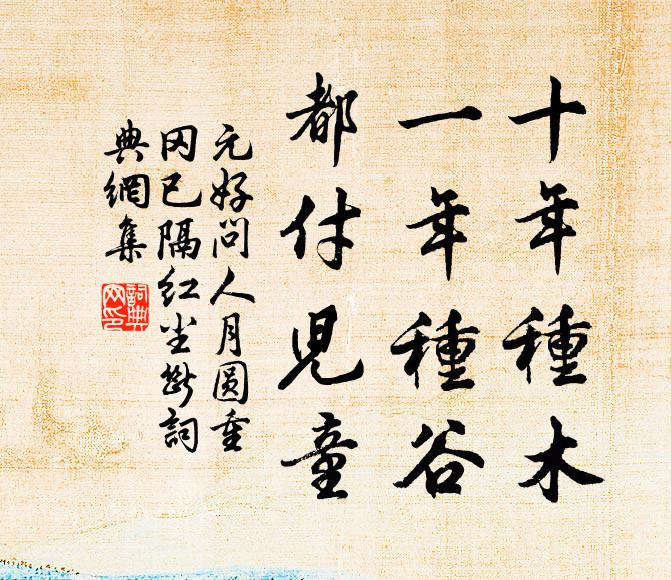 十年種木
一年種谷
都付兒童
元好問人月圆重
冈已隔红尘断詞
典網集
詞典
网印